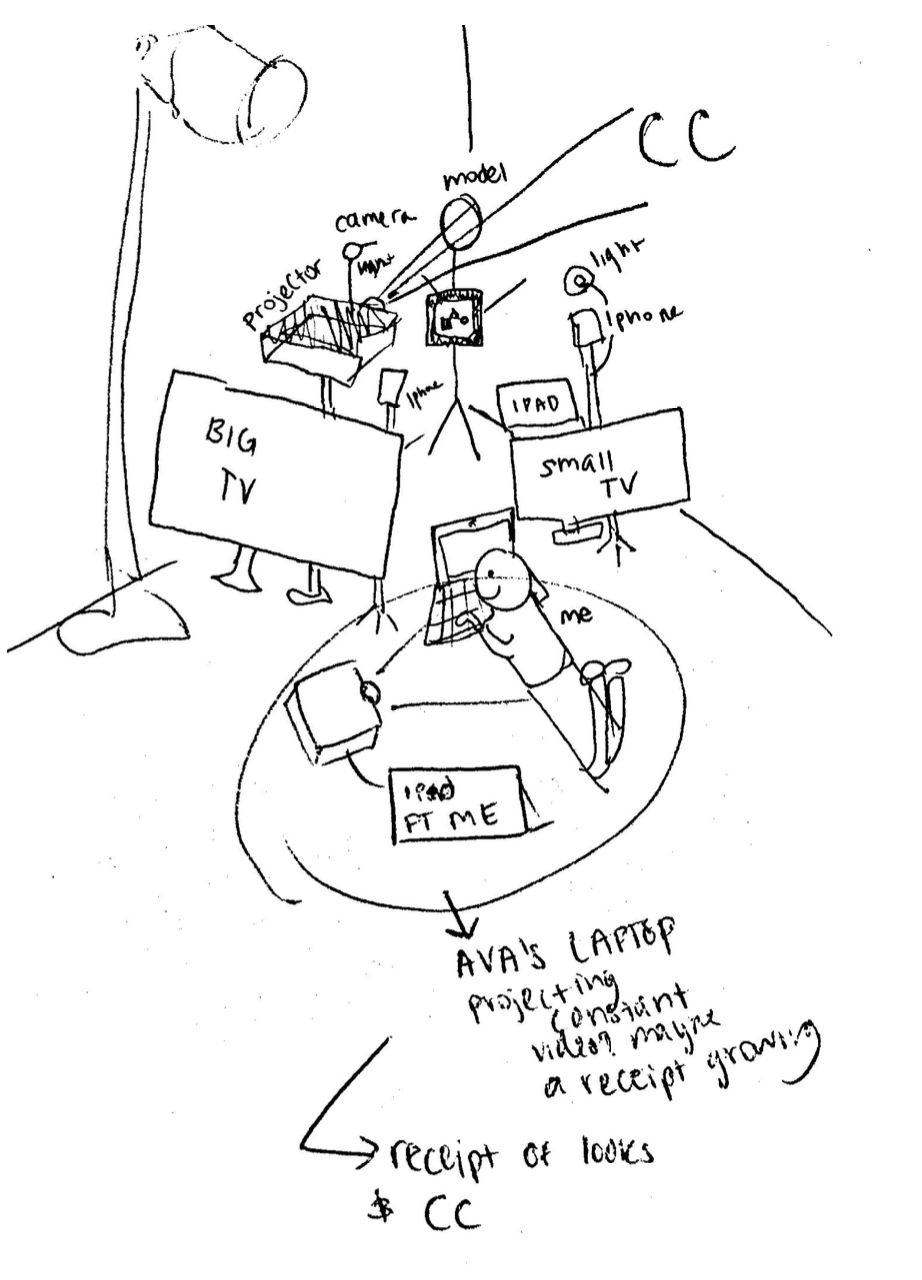 CC
model
camera
light
projector
light
iphone
iphone
IPAD
BIG
TV
small
TV
me
ipad
FT ME
AVA'S LAPTOP
projecting
constant
video? maybe
a receipt growing
receipt of looks
$ CC